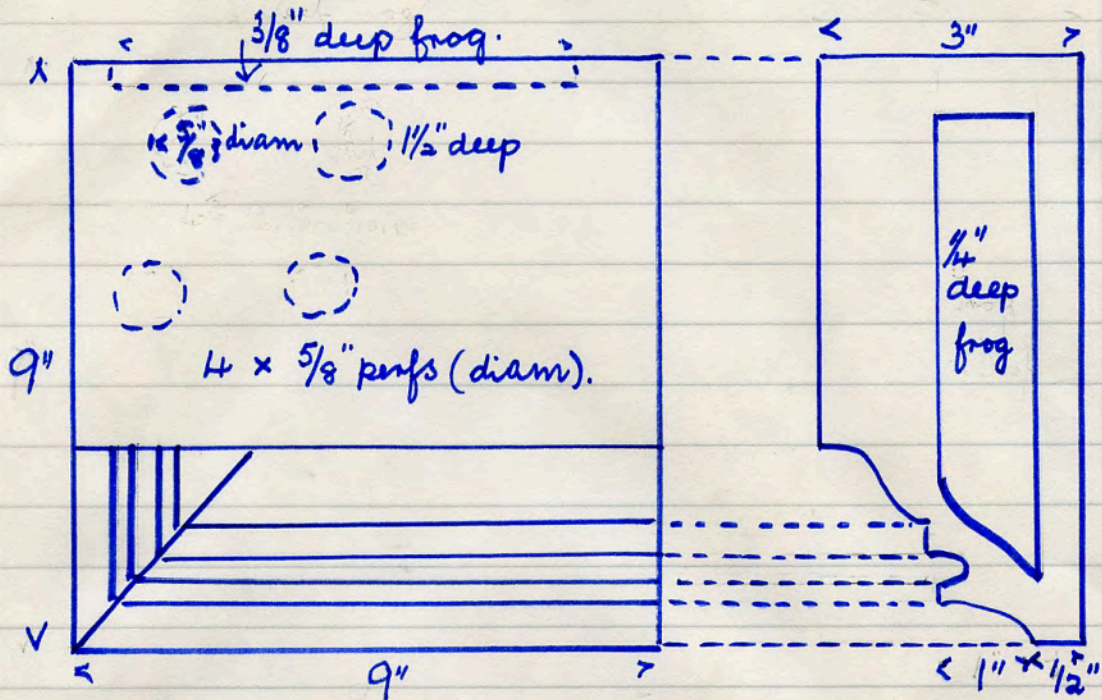 3/8" deep frog.
3"
5/8" diam
1 1/2" deep
1/4"
deep
frog
9"
4 x 5/8" perfs (diam).
9"
1"
1/2"